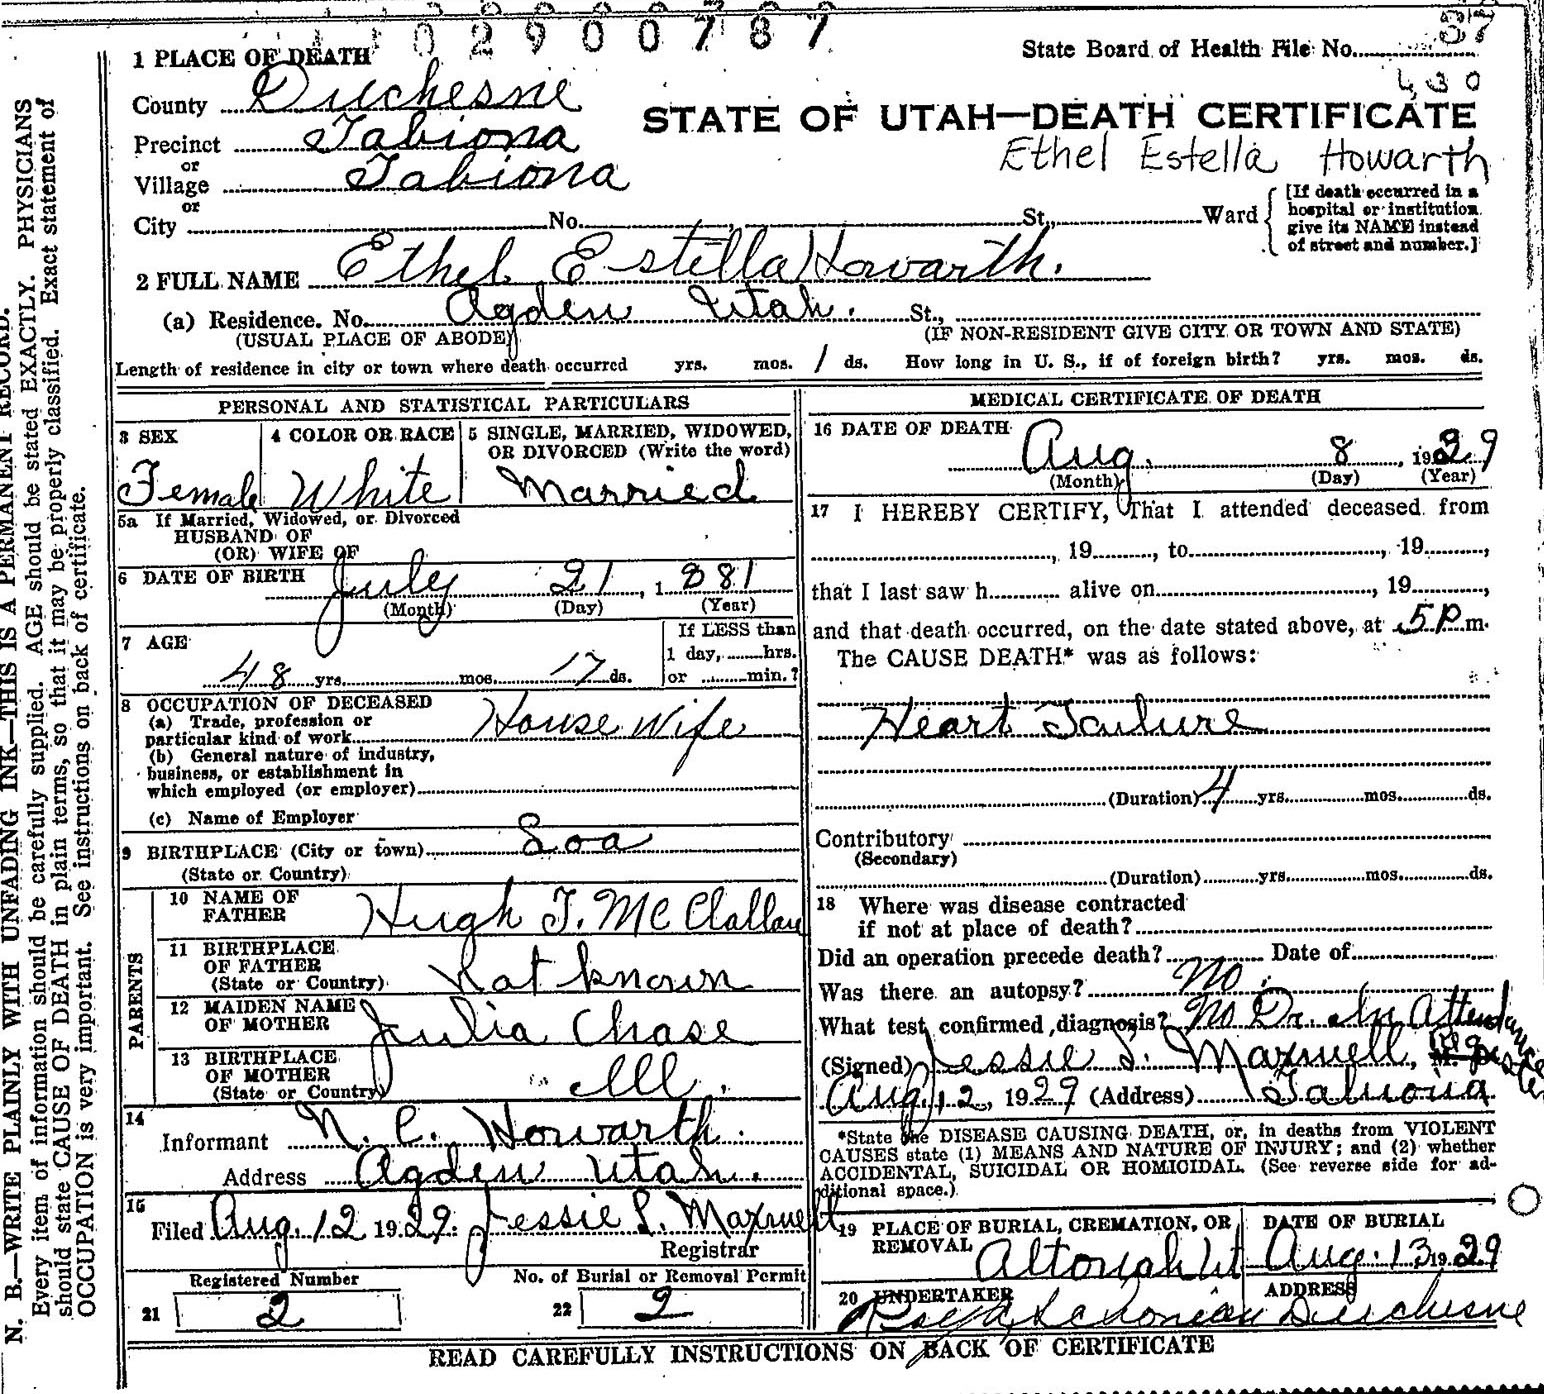 0 2 9 0 0 7 8 7
State Board of Health File No. 37
430
1 PLACE OF DEATH
County Duchesne
STATE OF UTAH—DEATH CERTIFICATE
Precinct Tabiona
Ethel Estella Howarth
or
Village Tabiona
or
City No. St., Ward
[If death occurred in a
hospital or institution
give its NAME instead
of street and number.]
2 FULL NAME Ethel Estella Howarth.
(a) Residence. No. Ogden Utah. St.,
(USUAL PLACE OF ABODE) (IF NON-RESIDENT GIVE CITY OR TOWN AND STATE)
Length of residence in city or town where death occurred yrs. mos. 1 ds. How long in U. S., if of foreign birth? yrs. mos. ds.
PERSONAL AND STATISTICAL PARTICULARS
3 SEX
Female
4 COLOR OR RACE
White
5 SINGLE, MARRIED, WIDOWED,
OR DIVORCED (Write the word)
Married
5a If Married, Widowed, or Divorced
HUSBAND OF
(OR) WIFE OF
6 DATE OF BIRTH July 21, 1881
(Month) (Day) (Year)
7 AGE
48 yrs. mos. 17 ds.
If LESS than
1 day, hrs.
or min.?
8 OCCUPATION OF DECEASED
(a) Trade, profession or
particular kind of work House Wife
(b) General nature of industry,
business, or establishment in
which employed (or employer)
(c) Name of Employer
9 BIRTHPLACE (City or town) Loa
(State or Country)
PARENTS
10 NAME OF
FATHER Hugh J. McClallan
11 BIRTHPLACE
OF FATHER
(State or Country) Not known
12 MAIDEN NAME
OF MOTHER Julia Chase
13 BIRTHPLACE
OF MOTHER
(State or Country) Ill.
14
Informant N. C. Howarth.
Address Ogden Utah.
15
Filed Aug. 12 1929. Jessie L. Maxwell
Registrar
Registered Number
21 2
No. of Burial or Removal Permit
22 2
MEDICAL CERTIFICATE OF DEATH
16 DATE OF DEATH
Aug. 8, 1929
(Month) (Day) (Year)
17 I HEREBY CERTIFY, That I attended deceased from
, 19, to, 19,
that I last saw h alive on, 19,
and that death occurred, on the date stated above, at 5 P. m.
The CAUSE DEATH* was as follows:
Heart Failure
(Duration) 4 yrs. mos. ds.
Contributory
(Secondary)
(Duration) yrs. mos. ds.
18 Where was disease contracted
if not at place of death?
Did an operation precede death? Date of
Was there an autopsy? No.
What test confirmed diagnosis? No Dr. In Attendance
(Signed) Jessie L. Maxwell, M. D. Register
Aug, 12, 1929 (Address) Tabiona
*State the DISEASE CAUSING DEATH, or, in deaths from VIOLENT
CAUSES state (1) MEANS AND NATURE OF INJURY; and (2) whether
ACCIDENTAL, SUICIDAL OR HOMICIDAL. (See reverse side for ad-
ditional space.)
19 PLACE OF BURIAL, CREMATION, OR
REMOVAL Altonah Ut
DATE OF BURIAL
Aug. 13 1929
20 UNDERTAKER
ADDRESS
Duchesne
READ CAREFULLY INSTRUCTIONS ON BACK OF CERTIFICATE
N. B.—WRITE PLAINLY WITH UNFADING INK—THIS IS A PERMANENT RECORD.
Every item of information should be carefully supplied. AGE should be stated EXACTLY. PHYSICIANS
should state CAUSE OF DEATH in plain terms, so that it may be properly classified. Exact statement of
OCCUPATION is very important. See instructions on back of certificate.